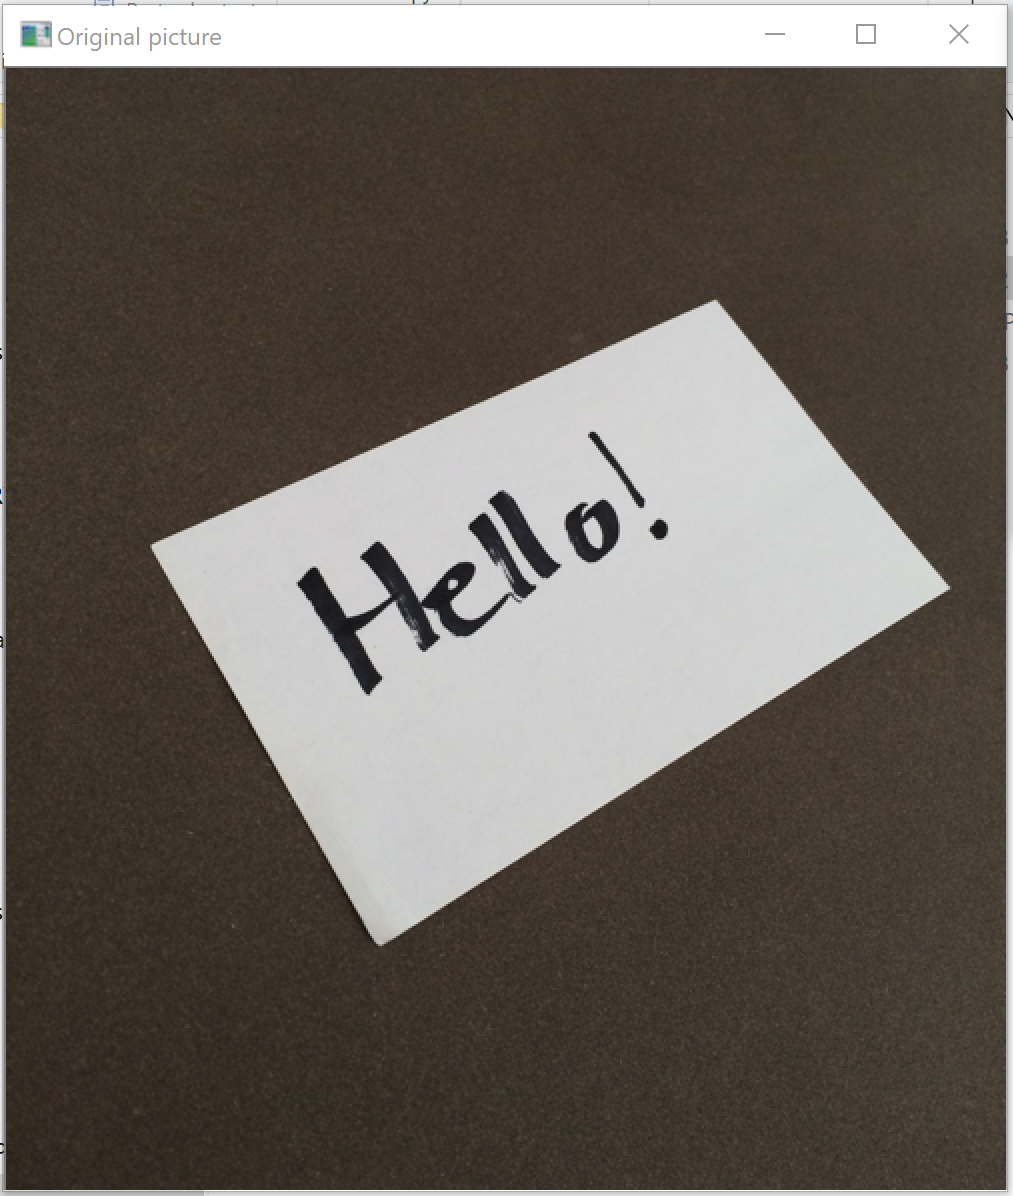 Original picture
Hello!